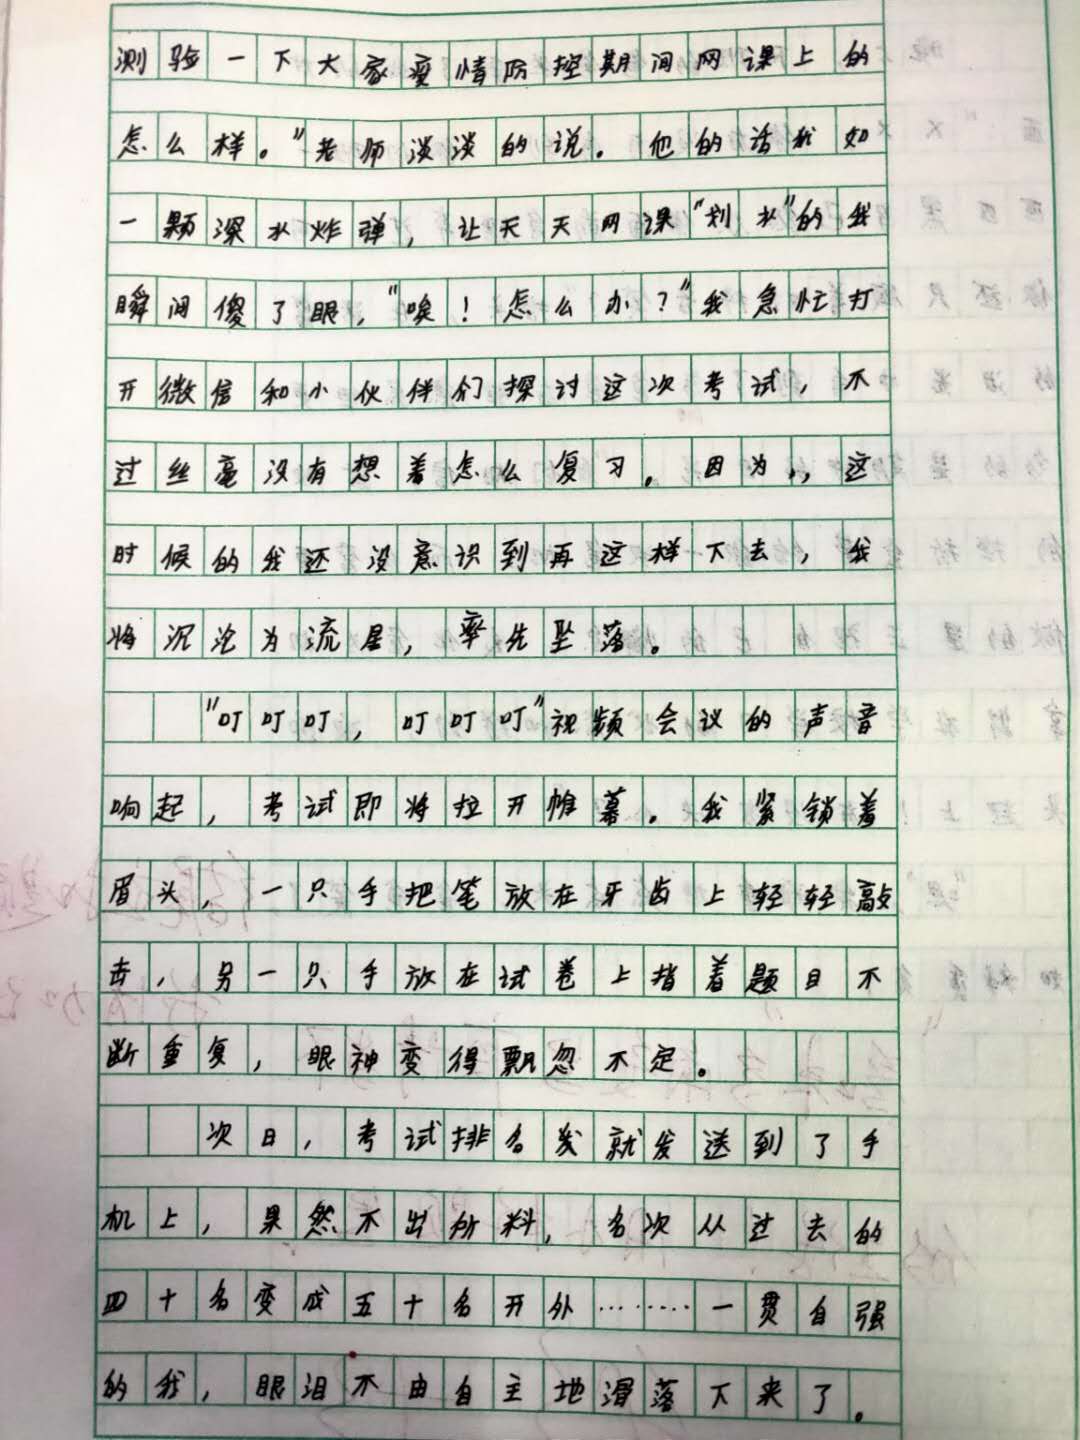 测验一下大家疫情防控期间网课上的
怎么样。"老师淡淡的说。他的话我如
一颗深水炸弹，让天天网课"划水"的我
瞬间傻了眼，"唉！怎么办？"我急忙打
开微信和小伙伴们探讨这次考试，不
过丝毫没有想着怎么复习。因为，，这
时候的我还没意识到再这样下去，我
将沉沦为流星，率先坠落。
"叮叮叮，叮叮叮"视频会议的声音
响起，考试即将拉开帷幕。我紧锁着
眉头，一只手把笔放在牙齿上轻轻敲
击，另一只手放在试卷上指着题目不
断重复，眼神变得飘忽不定。
次日，考试排名发就发送到了手
机上，果然不出所料，名次从过去的
四十名变成五十名开外………一贯自强
的我，眼泪不由自主地滑落下来了。